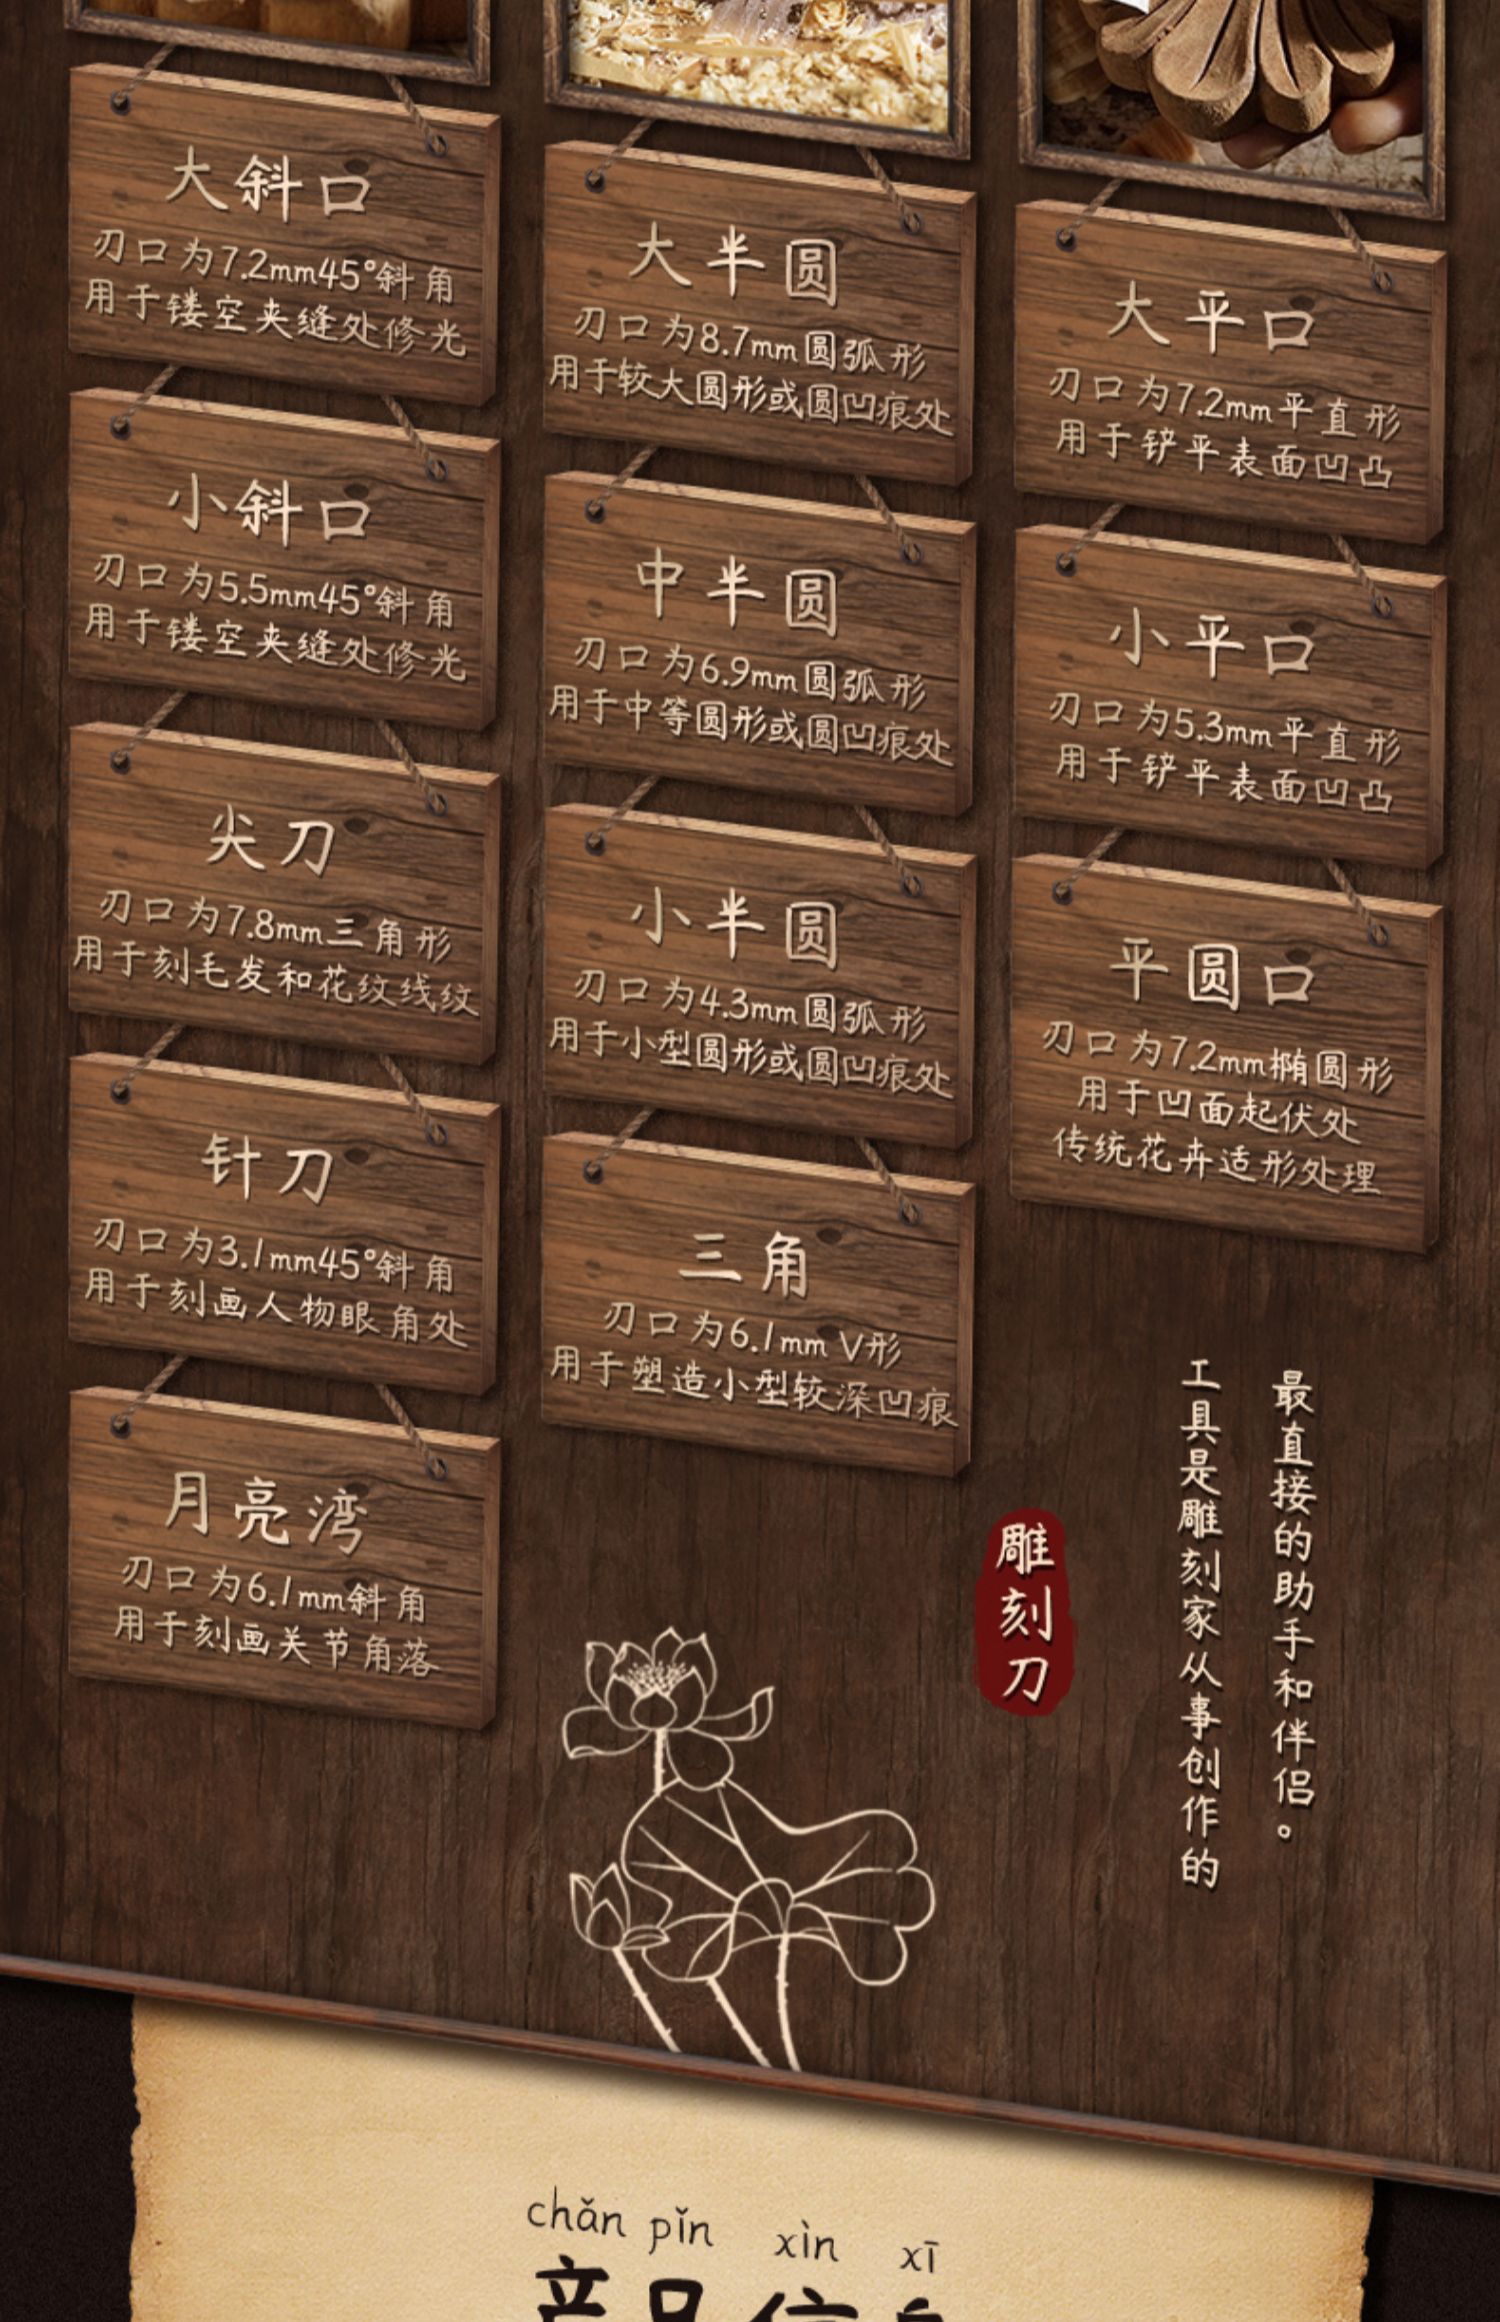 大斜口
刃口为7.2mm45°斜角
用于镂空夹缝处修光
小斜口
刃口为5.5mm45°斜角
用于镂空夹缝处修光
尖刀
刃口为7.8mm三角形
用于刻毛发和花纹线纹
针刀
刃口为3.1mm45°斜角
用于刻画人物眼角处
月亮湾
刃口为6.1mm斜角
用于刻画关节角落
大半圆
刃口为8.7mm圆弧形
用于较大圆形或圆凹痕处
中半圆
刃口为6.9mm圆弧形
用于中等圆形或圆凹痕处
小半圆
刃口为4.3mm圆弧形
用于小型圆形或圆凹痕处
三角
刃口为6.1mm V形
用于塑造小型较深凹痕
大平口
刃口为7.2mm平直形
用于铲平表面凹凸
小平口
刃口为5.3mm平直形
用于铲平表面凹凸
平圆口
刃口为7.2mm椭圆形
用于凹面起伏处
传统花卉适形处理
最直接的助手和伴侣。
工具是雕刻家从事创作的
雕刻刀
chǎn pǐn xìn xī
产品信息